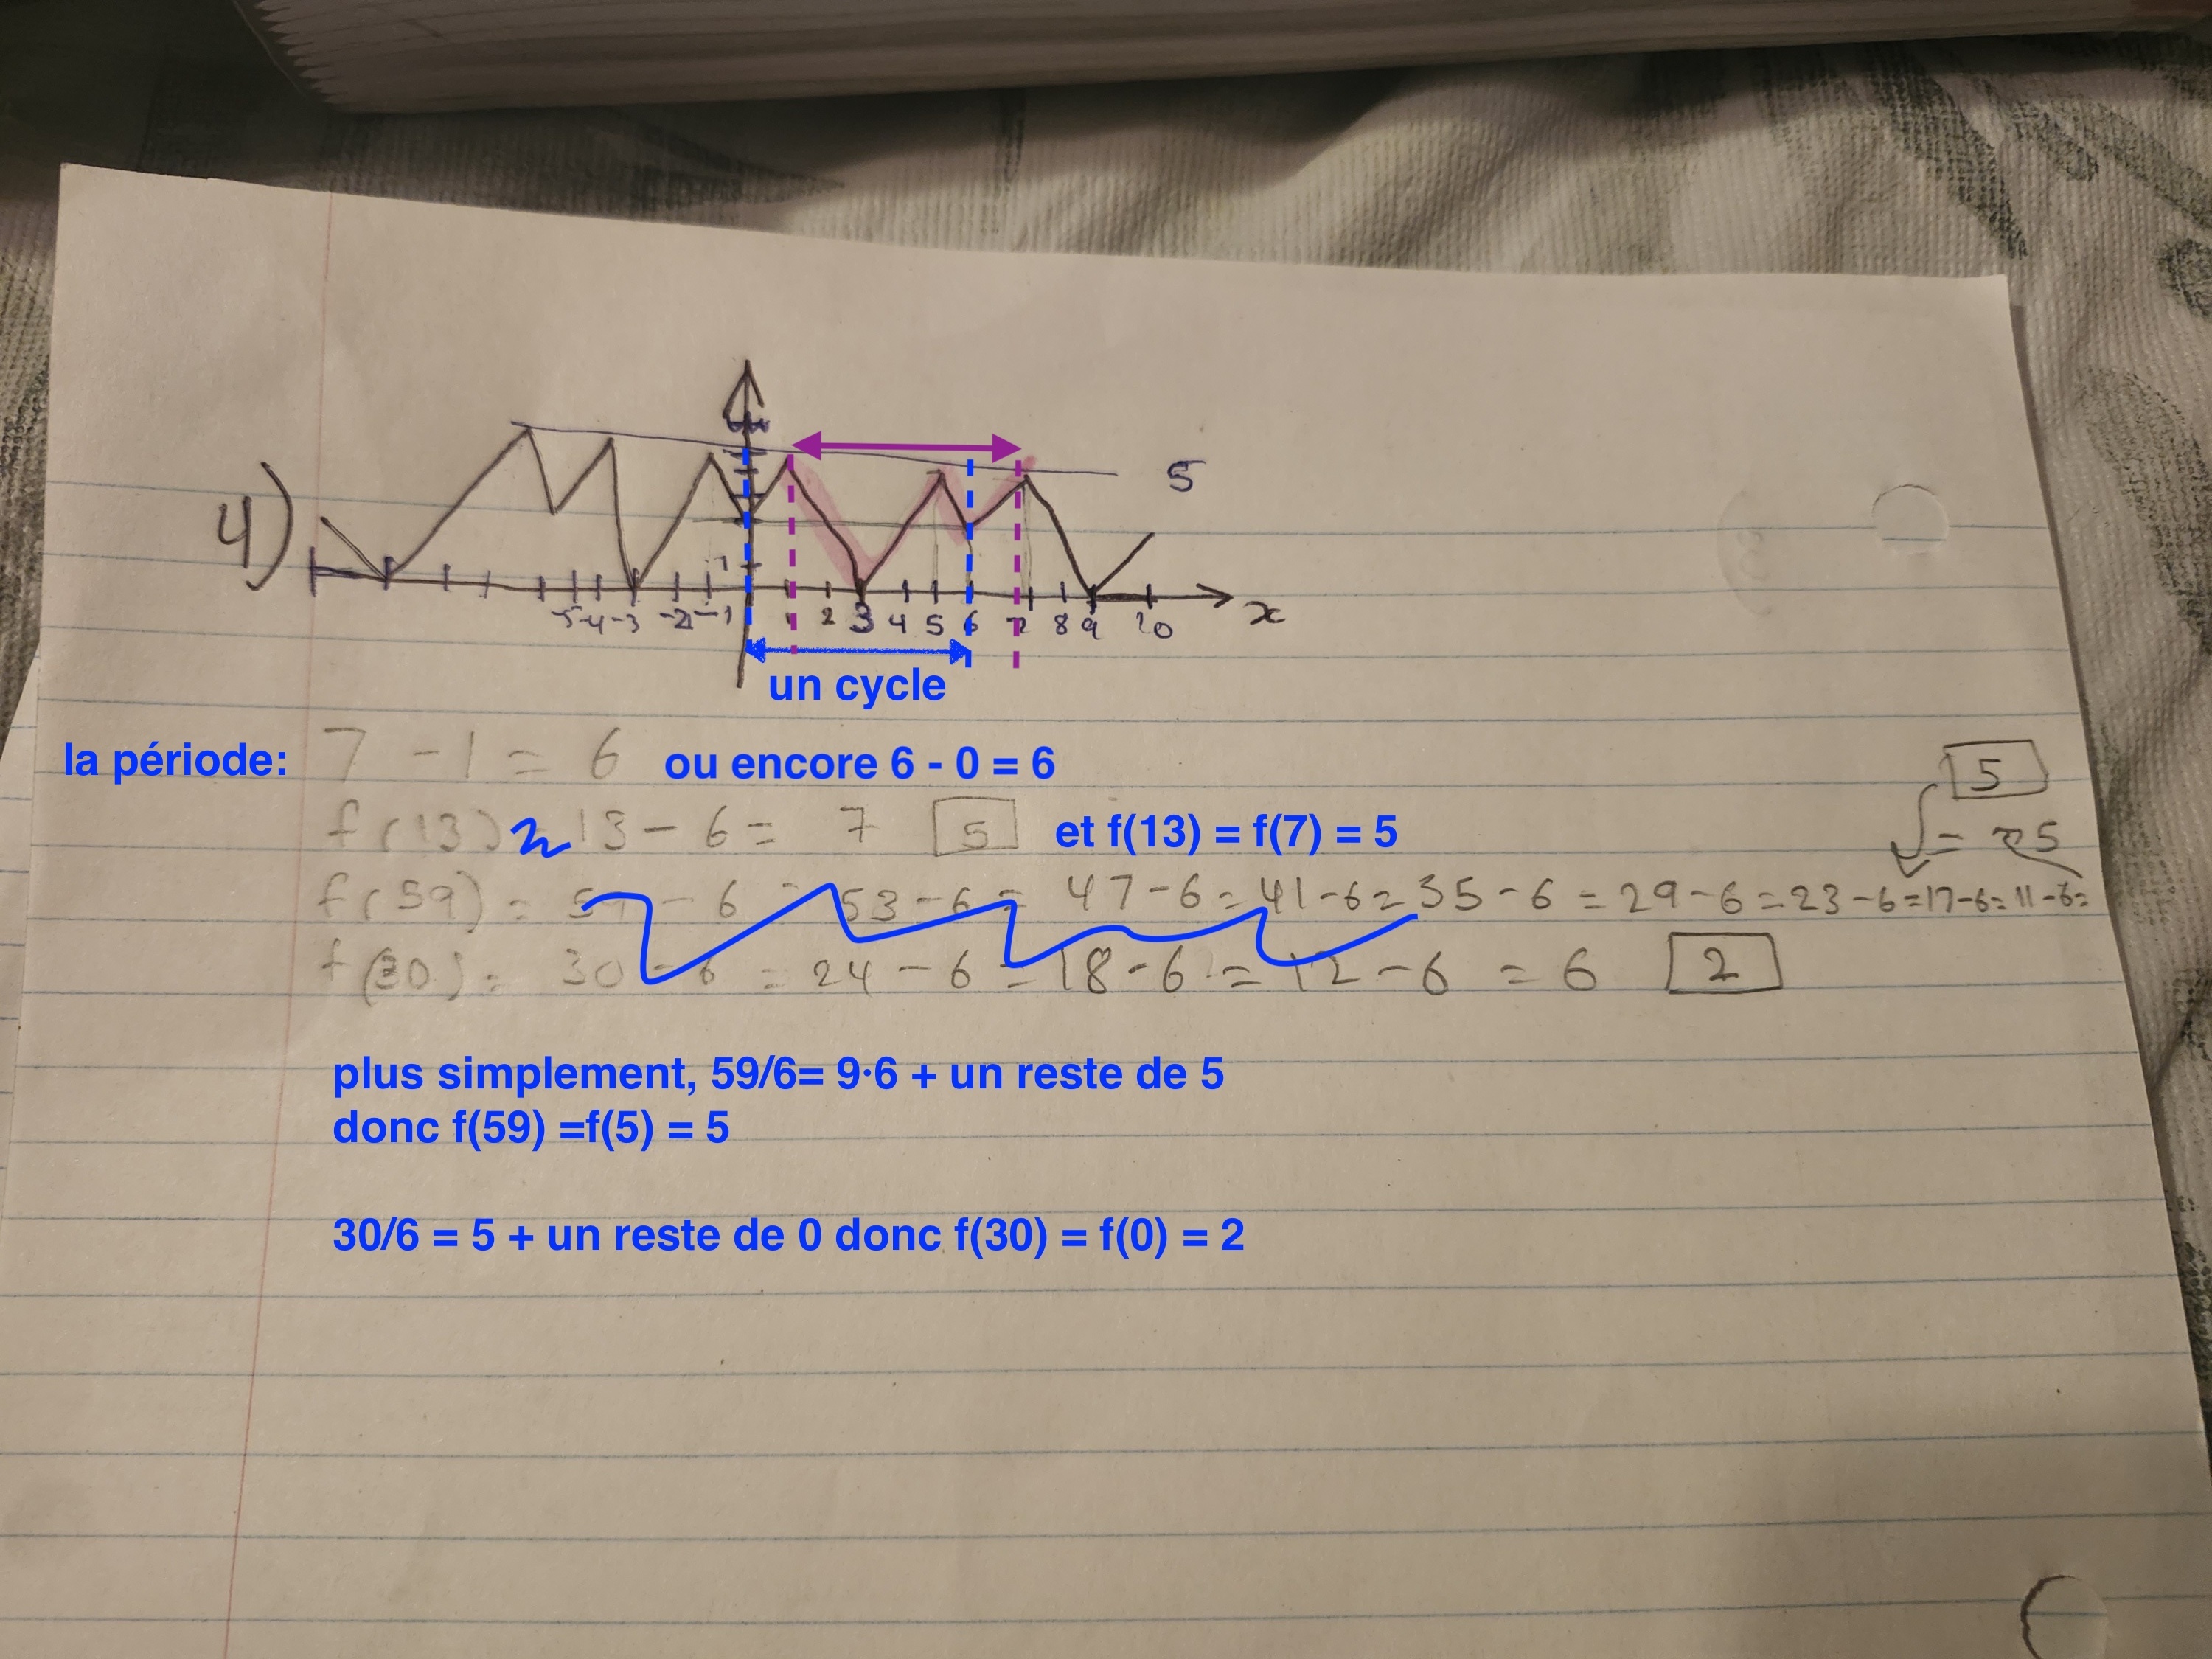 4)
5
1
-5 -4 -3 -2 -1 1 2 3 4 5 6 7 8 9 10 x
un cycle
la période: 7 - 1 = 6 ou encore 6 - 0 = 6
5
f(13) 13 - 6 = 7 5 et f(13) = f(7) = 5
= 5
f(59) = 59 - 6 = 53 - 6 = 47 - 6 = 41 - 6 = 35 - 6 = 29 - 6 = 23 - 6 = 17 - 6 = 11 - 6 =
f(30) = 30 - 6 = 24 - 6 = 18 - 6 = 12 - 6 = 6 2
plus simplement, 59/6= 9·6 + un reste de 5
donc f(59) =f(5) = 5
30/6 = 5 + un reste de 0 donc f(30) = f(0) = 2